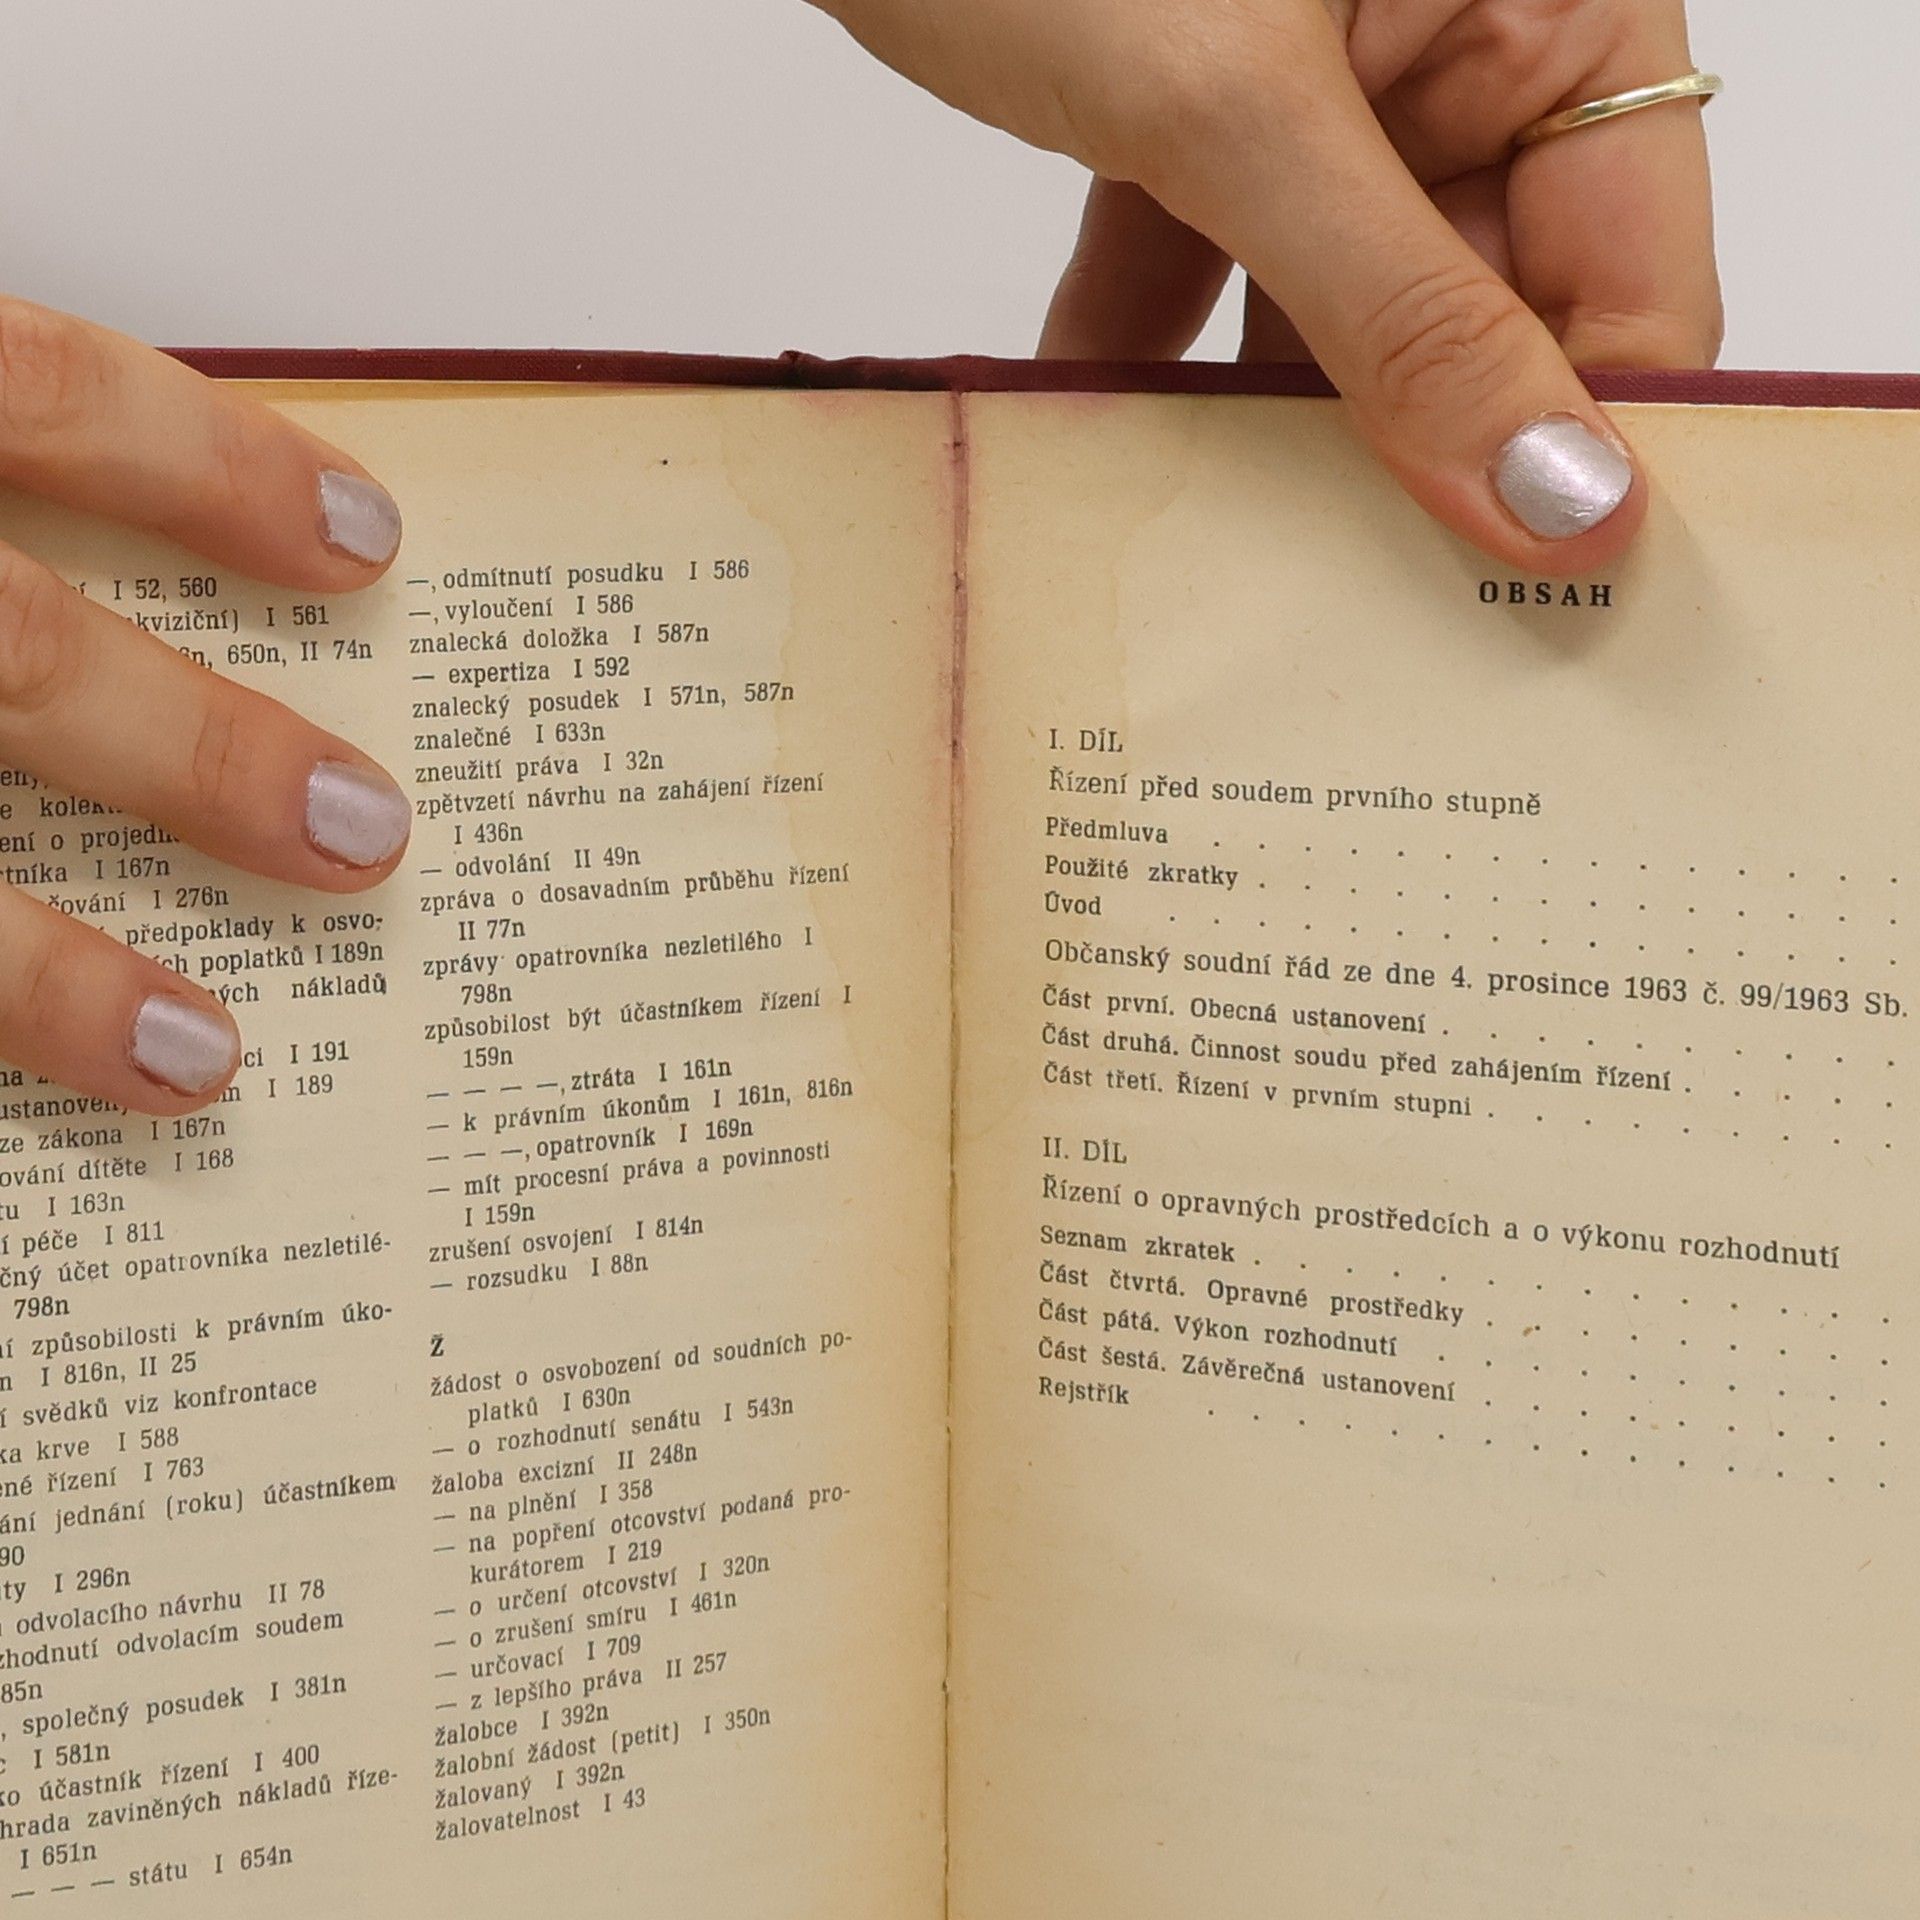 I 52, 560
I 561
650n, II 74n
e
ení o
I 167n
I 276n
předpoklady k osvo-
poplatků I 189n
nákladů
I 191
I 189
ze zákona I 167n
ování dítěte I 168
tu I 163n
í péče I 811
čný účet opatrovníka nezletilé-
798n
ní způsobilosti k právním úko-
n I 816n, II 25
í svědků viz konfrontace
ka krve I 588
ené řízení I 763
ání jednání (roku) účastníkem
90
ty I 296n
odvolacího návrhu II 78
zhodnutí odvolacím soudem
85n
, společný posudek I 381n
I 581n
ko účastník řízení I 400
hrada zaviněných nákladů říze-
I 651n
— — — státu I 654n
—, odmítnutí posudku I 586
—, vyloučení I 586
znalecká doložka I 587n
— expertiza I 592
znalecký posudek I 571n, 587n
znalečné I 633n
zneužití práva I 32n
zpětvzetí návrhu na zahájení řízení
I 436n
— odvolání II 49n
zpráva o dosavadním průběhu řízení
II 77n
zprávy opatrovníka nezletilého I
798n
způsobilost být účastníkem řízení I
159n
— — — —, ztráta I 161n
— k právním úkonům I 161n, 816n
— — —, opatrovník I 169n
— mít procesní práva a povinnosti
I 159n
zrušení osvojení I 814n
— rozsudku I 88n
Ž
žádost o osvobození od soudních po-
platků I 630n
— o rozhodnutí senátu I 543n
žaloba excizní II 248n
— na plnění I 358
— na popření otcovství podaná pro-
kurátorem I 219
— o určení otcovství I 320n
— o zrušení smíru I 461n
— určovací I 709
— z lepšího práva II 257
žalobce I 392n
žalobní žádost (petit) I 350n
žalovaný I 392n
žalovatelnost I 43
OBSAH
I. DÍL
Řízení před soudem prvního stupně
Předmluva . . . . . . . . . . . . . . .
Použité zkratky . . . . . . . . . . . . . .
Úvod . . . . . . . . . . . . . . . .
Občanský soudní řád ze dne 4. prosince 1963 č. 99/1963 Sb.
Část první. Obecná ustanovení . . . . . . . . . .
Část druhá. Činnost soudu před zahájením řízení . . . . .
Část třetí. Řízení v prvním stupni . . . . . . . . .
II. DÍL
Řízení o opravných prostředcích a o výkonu rozhodnutí
Seznam zkratek . . . . . . . . . . . . . .
Část čtvrtá. Opravné prostředky . . . . . . . . .
Část pátá. Výkon rozhodnutí . . . . . . . . . .
Část šestá. Závěrečná ustanovení . . . . . . . . .
Rejstřík . . . . . . . . . . . . . . .